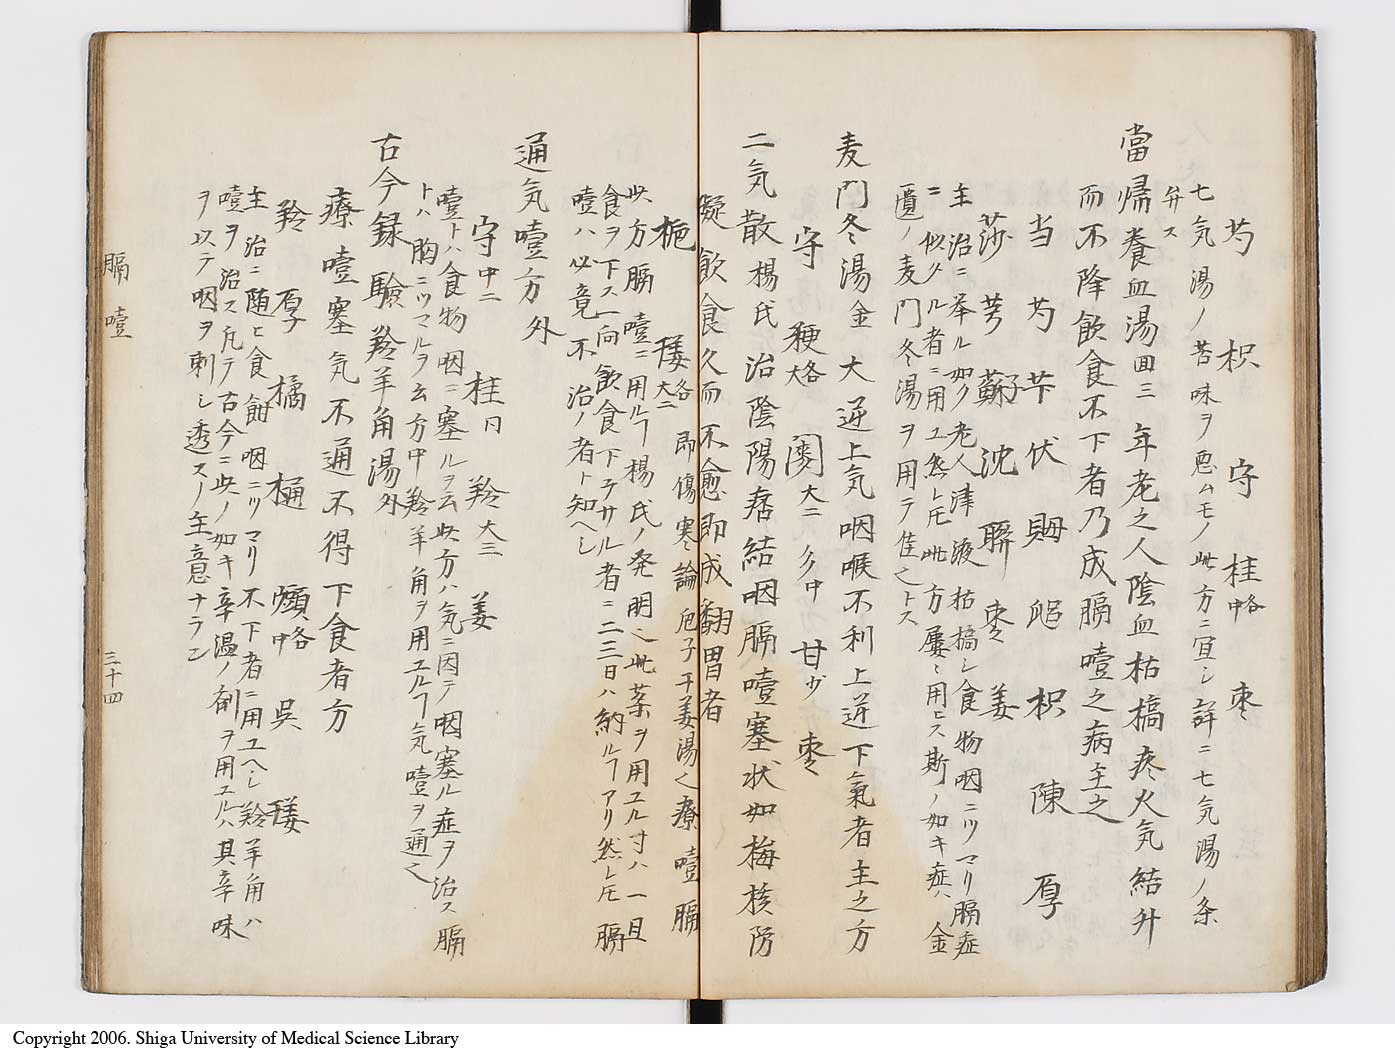 芍 枳 守 桂各中 枣
七気湯ノ苦味ヲ悪ムモノ此方ニ宜シ詳ニ七気湯ノ条
弁ス
當帰養血湯回三 年老之人陰血枯槁痰火気結升
而不降飲食不下者乃成膈噎之病主之
当 芍 苄 伏 枳 陳 厚
莎 芎 蘇子 沈 枣 姜
主治ニ挙ル如ク老人津液枯槁シ食物咽ニツマリ膈症
ニ似タル者ニ用ユ然レ𪜈此方屡〻用ヒス斯ノ如キ症ハ金
匱ノ麦門冬湯ヲ用テ佳之トス
麦門冬湯金 大逆上気咽喉不利止逆下氣者主之方
守 粳各大 大二 中 甘少 枣
二気散楊氏 治陰陽痞結咽膈噎塞状如梅核防
礙飲食久而不愈即成翻胃者
梔 各大二 即傷寒論梔子干姜湯之療噎膈
此方膈噎ニ用ルヿ楊氏ノ発明之此薬ヲ用ユル寸ハ一旦
食ヲ下ス一向飲食下ラサル者ニ二三日ハ納ルヿアリ然レ𪜈膈
噎ハ必竟不治ノ者ト知ヘシ
通気噎方外
守中二 桂同 羚大三 姜
噎トハ食物咽ニ塞ルヲ云此方ハ気ニ因テ咽塞ル症ヲ治ス膈
トハ胸ニツマルヲ云方中羚羊角ヲ用ユルヿ気噎ヲ通之
古今録驗羚羊角湯外
療噎塞気不通不得下食者方
羚 厚 橘 各中 呉
主治ニ随ヒ食餠咽ニツマリ不下者ニ用ユヘシ羚羊角ハ
噎ヲ治ス凡テ古今ニ此ノ如キ辛温ノ剤ヲ用ユルハ其辛味
ヲ以テ咽ヲ刺シ透スノ主意ナラン
膈噎
三十四
Copyright 2006. Shiga University of Medical Science Library